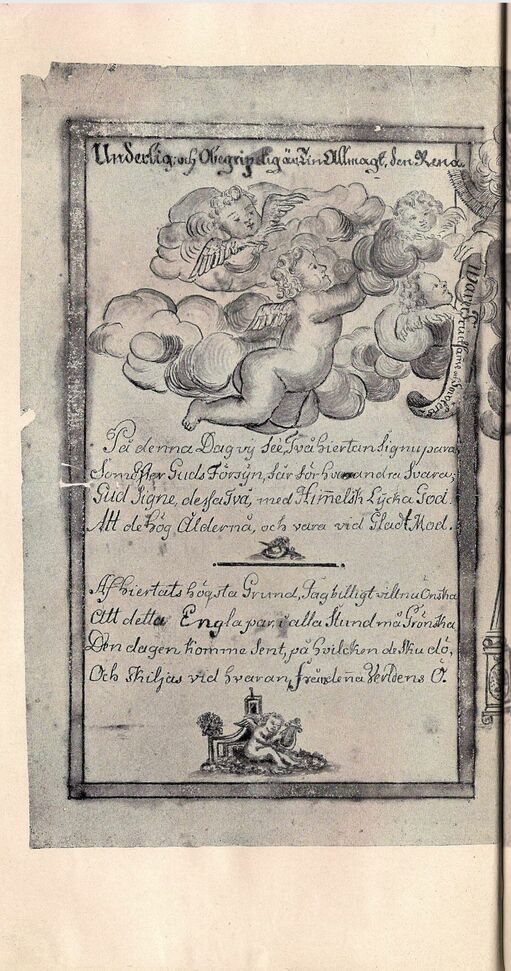 Underlig och Obegriplig är Tin Allmagt, den Rena
Warer Fruchtsame och
På denna Dag vij See, Två hiertan Signu para
Som efter Guds Försÿn, får för hvarandra Svara;
Gud Signe, dessa Två, med Him̃elsk Lÿcka God.
Att de hög Ålderna, och vara vid Gladt Mod.
Af hiertats högsta Grund, Jag billigt vill nu Önska
Att detta Engla par, i alla Stund må Grönska
Den dagen komme Sent, på hvilcken de Sku dö,
Och Skiljas vid hvaran, från deña Verldens Ö.